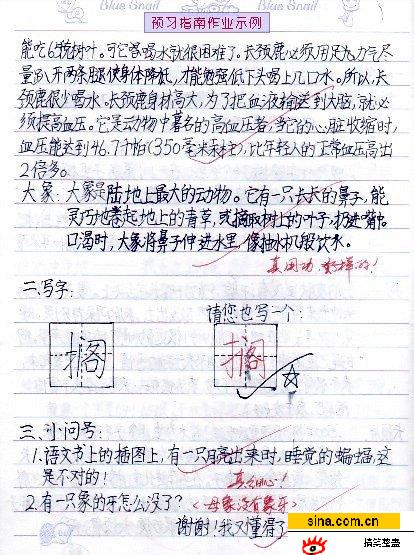 Blue Snail
预习指南作业示例
Blue Snail
能吃6捆树叶。可它喝水就很困难了。长颈鹿必须用足力气尽
量趴开两条腿使身体降低,才能勉强低下头喝上几口水。所以,长
颈鹿很少喝水。长颈鹿身材高大,为了把血液输送到大脑,就必
须提高血压。它是动物中著名的高血压者,当它的心脏收缩时,
血压能达到46.7千帕(350毫米汞柱),比年轻人的正常血压高出
2倍多。
大象:大象是陆地上最大的动物。它有一只长长的鼻子,能
灵巧地卷起地上的青草,或摘取树上的叶子,扔进嘴中。
口渴时,大象将鼻子伸进水里,像抽水机般饮水。
真用功,好样的!
二、写字:
请您也写一个:
搁 搁
三、小问号:
1.语文书上的插图上,有一只月亮出来时,睡觉的蝙蝠,这
是不对的!
真细心!
2.有一只象的牙怎么没了?(母象没有象牙)
谢谢!我又懂得了
sina.com.cn
搞笑整蛊